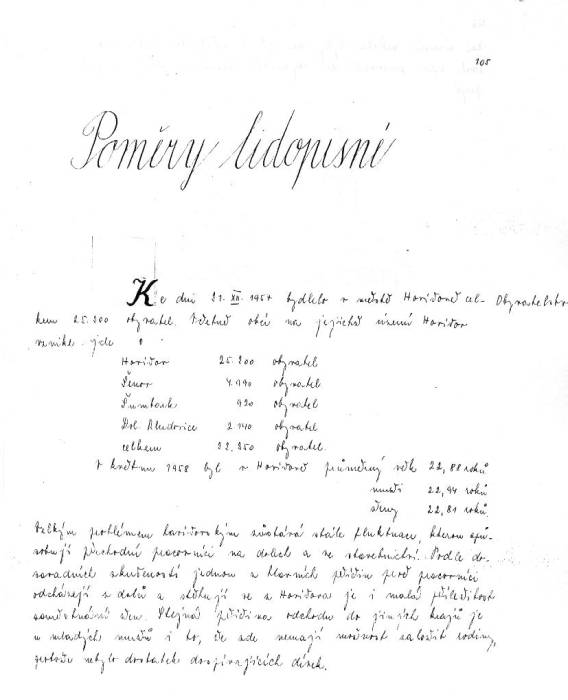 105
Poměry lidopisné
Ke dni 31. XII. 1957 bydlelo v městě Havířově cel- Obyvatelstvo
kem 25.200 obyvatel. Včetně obcí na jejichž území Havířov
vznikl jde
Havířov 25.200 obyvatel
Šenov 4.190 obyvatel
Šumbark 920 obyvatel
Dol. Bludovice 2.140 obyvatel
celkem obyvatel.
V květnu 1958 byl v Havířově průměrný věk 22,88 roků
muži 22,94 roků
ženy 22,81 roků
Velkým problémem havířovským zůstává stále fluktuace, kterou způ-
sobují přechodní pracovníci na dolech a ve stavebnictví. Podle do-
savadních zkušeností jednou z hlavních příčin proč pracovníci
odcházejí z dolů a stěhují se z Havířova je i malá příležitost
zaměstnání žen. Stejná příčina odchodu do jiných krajů je
u mladých mužů i to, že zde nemají možnost založit rodiny,
protože nebylo dostatek dospívajících dívek.